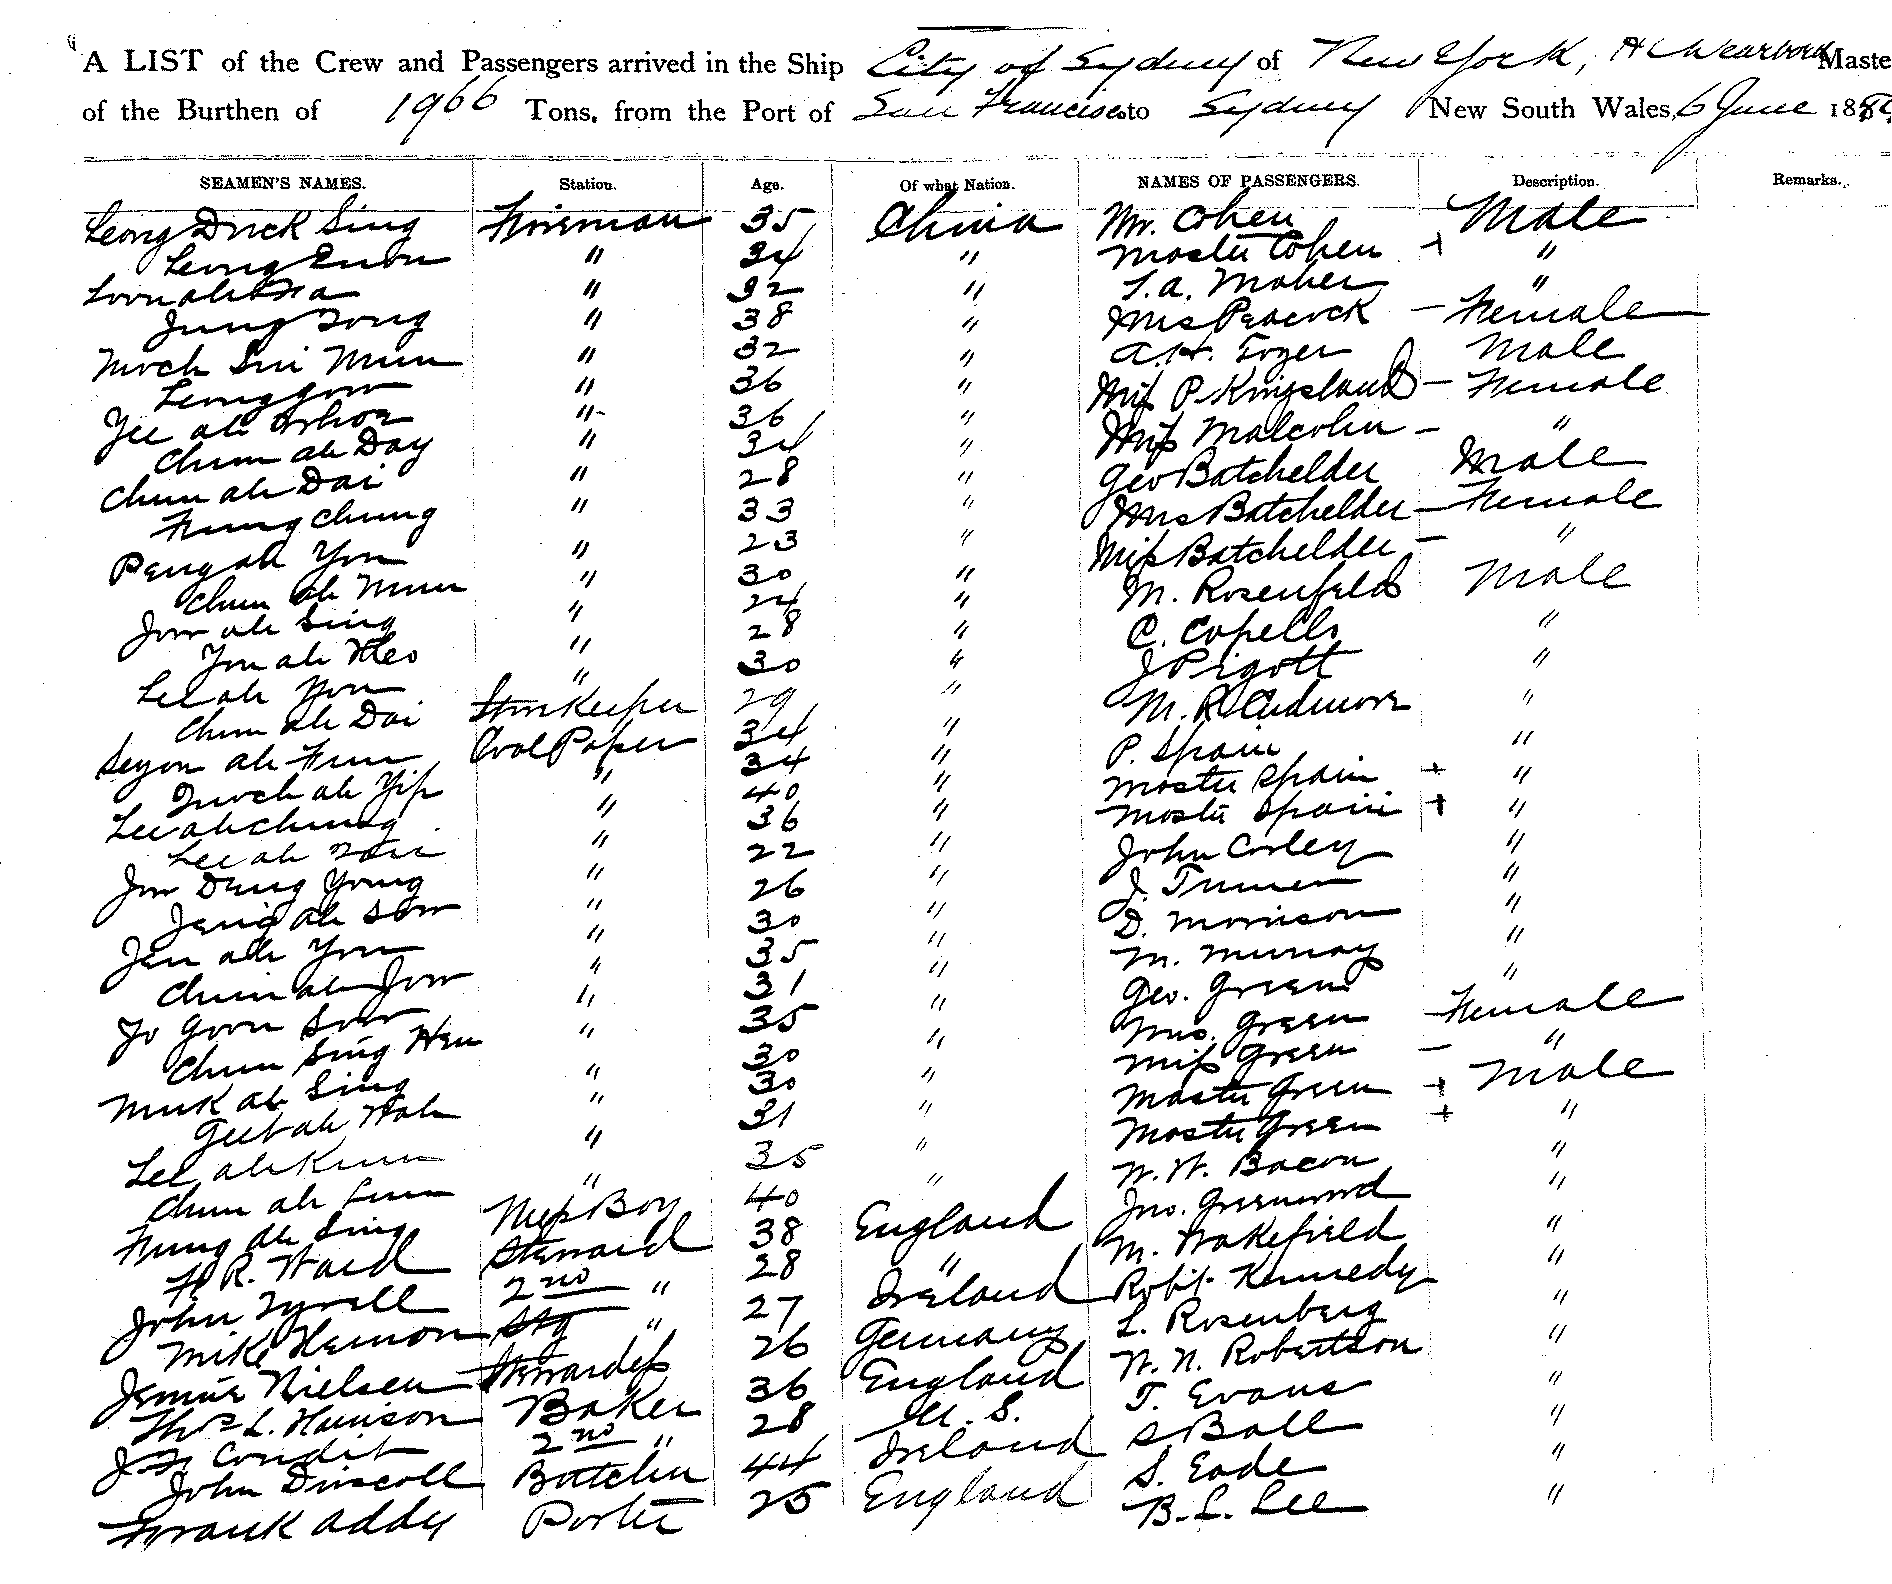 A LIST of the Crew and Passengers arrived in the Ship City of Sydney of New York, H C Dearborn Maste
of the Burthen of 1966 Tons, from the Port of San Francisco to Sydney New South Wales, 6 June 188
SEAMEN'S NAMES. Station. Age. Of what Nation. NAMES OF PASSENGERS. Description. Remarks.
Leong Duck Sing Fireman 35 China Mr. Cohen Male
Leong " 34 " Master Cohen + "
32 " T. A. Maher "
Jung Song " 38 " Mrs Peacock - Female
Moch Sui Mun " 32 " A. H. Tozer Male
Leong Gow " 36 " Miss P. Kingsland - Female
Yee ah " 36 " Miss Malcolm - "
Chum ah Day " 34 " Geo Batchelder Male
Chun ah Dai " 28 " Mrs Batchelder - Female
Fung Chung " 33 " Miss Batchelder - "
ah You " 23 " M. Rosenfeld Male
Chum ah Mun " 30 " C. Capelli "
Jow ah Sing " 24 " J Pigott "
You ah " 28 " M. R. Cudmore "
Lee ah You " 30 " P. Spain "
Chum ah Dai Storekeeper 29 " Master Spain + "
ah Fun Coal Passer 34 " Master Spain + "
ah Yip " 34 " John Corley "
Lee ah Chung " 40 " J. Turner "
Lee ah " 36 " D. Morrison "
Jow Dung Yong " 22 " M. Murray "
ah Sow " 26 " Geo. Green "
Jen ah You " 30 " Mrs. Green Female
Chum ah Jow " 35 " Miss Green - "
Jo Goon Sow " 31 " Master Green + Male
Chum Sing Hen " 35 " Master Green + "
Muk ah Sing " 30 " W. H. Bacon "
ah Wah " 30 " Jno. Greenwood "
Lee ah Kum " 31 " M. Wakefield "
Chum ah Lum " 35 " Robt. Kennedy "
Fung ah Sing Mess Boy 40 " L. Rosenberg "
R. Ward Steward 38 England W. N. Robertson "
John Tyrell 2nd " 28 " T. Evans "
Mike Hernon Stg " 27 Ireland S Ball "
Jennie Nielsen Stewardess 26 Germany S. Eade "
Thos L. Harrison Baker 36 England B. L. Lee "
Condit 2nd " 28 U. S.
John Driscoll Butcher 44 Ireland
Frank Addy Porter 25 England